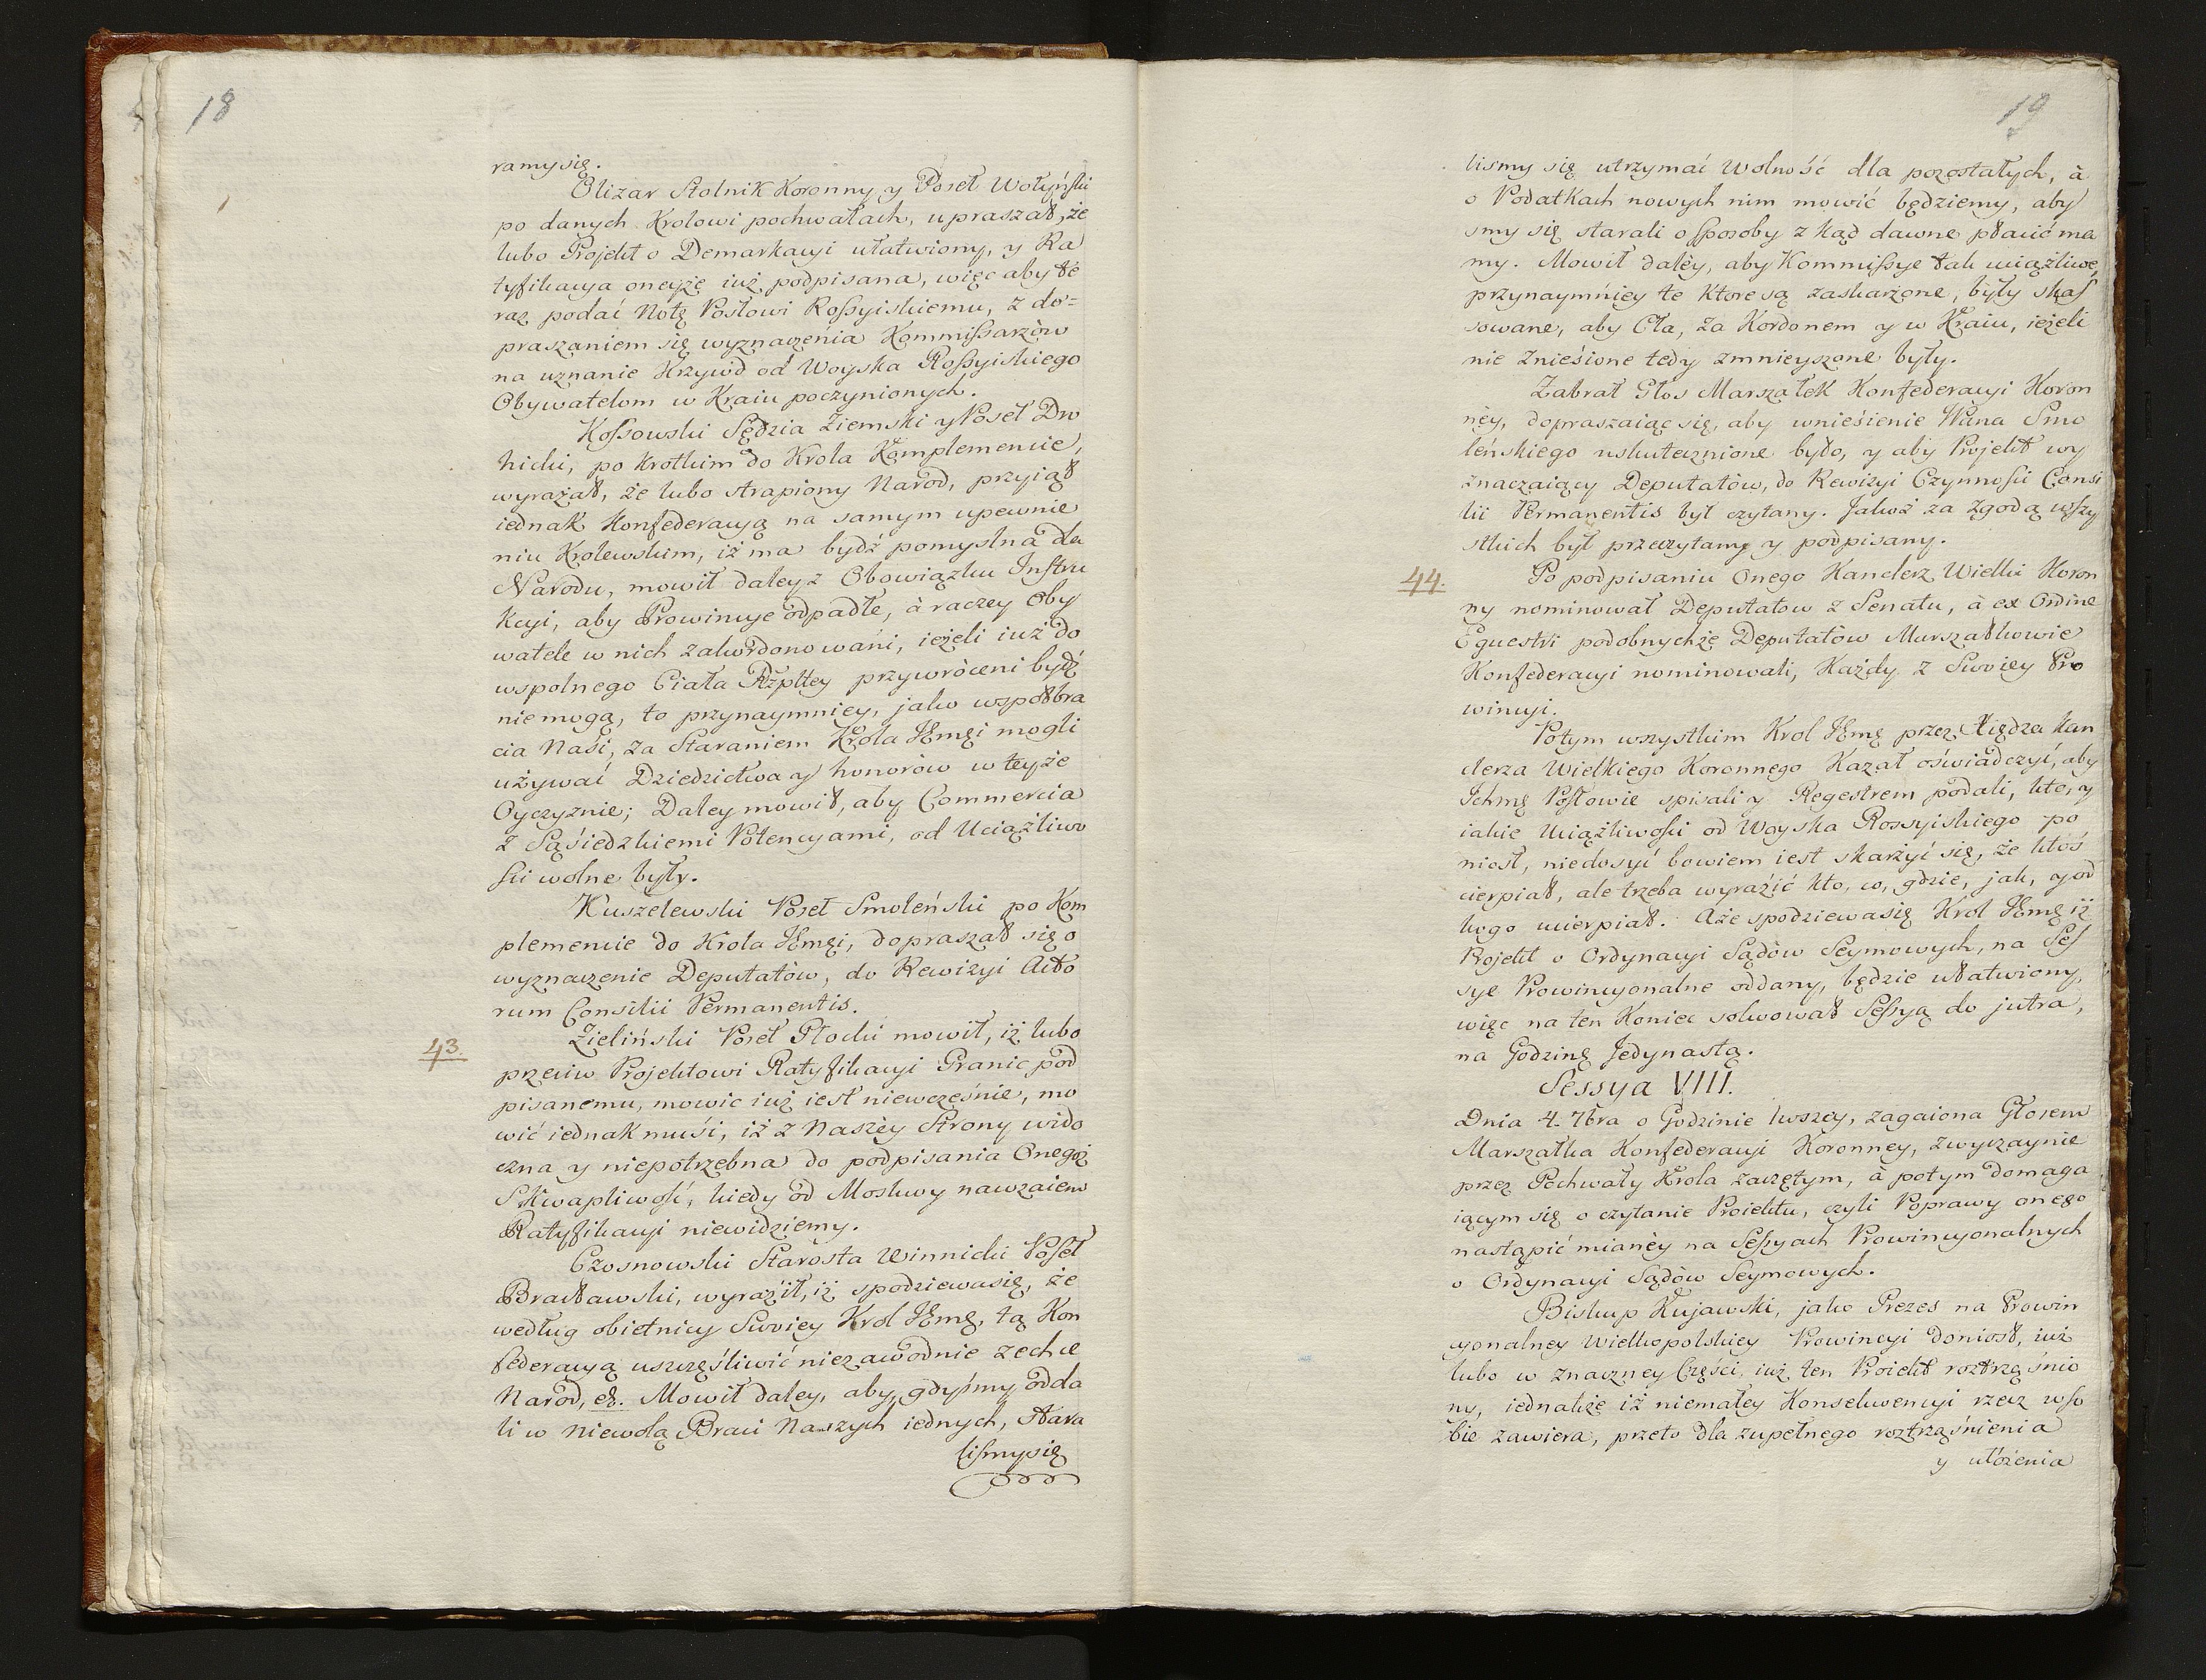 18
ramy się.
Olizar Stolnik Koronny y Poseł Wołyński
po danych Krolowi pochwałach, upraszał, że
lubo Projekt o Demarkacyi ułatwiony, y Ra
tyfikacya oneyże iuż podpisana, więc aby te
raz podać Notę Posłowi Rossyiskiemu, z do=
praszaniem się wyznaczenia Kommissarzòw
na uznanie Krzywd od Woyska Rossyiskiego
Obywatelom w Kraiu poczynionych.
Kossowski Sędzia Ziemski y Poseł Dro
hicki, po Krotkim do Krola Komplemencie,
wyrażał, że lubo strapiony Narod, przyiął
iednak Konfederacyą na samym upewnie
niu Krolewskim, iż ma bydź pomyslna dla
Narodu, mowił daley z Obowiązku Instru
kcyi, aby Prowincye odpadłe, à raczey Oby
watele w nich zakordonowani, ieżeli iuż do
wspolnego Ciała Rżpltey przywròceni bydź
nie mogą, to przynaymniey, jako wspołbra
cia Naśi, za Staraniem Krola JEmci mogli
używać Dziedzictwa y honoròw w teyże
Oyczyznie; Daley mowił, aby Commercia
z Sąśiedzkiemi Potencyami, od Uciążliwo
sci wolne były.
Kuszelewski Poseł Smoleński po Kom
plemencie do Krola JEmci, dopraszał się o
wyznaczenie Deputatòw, do Rewizyi Acto
rum Consilii Permanentis.
43.
Zieliński Poseł Płocki mowił, iż lubo
przeciw Projektowi Ratyfikacyi Granic pod
pisanemu, mowić iuż iest niewcześnie, mo
wić iednak muśi, iż z Naszèy Strony wido
czna y niepotrzebna do podpisania Onegoż
Skwapliwość, kiedy od Moskwy nawzaiem
Ratyfikacyi niewidziemy.
Czosnowski Starosta Winnicki Poseł
Bracławski, wyraził, iż spodziewa się, że
według obietnicy Swoiey Krol JEmć, tą Kon
federacyą uszczęśliwić niezawodnie zechce
Narod, et. Mowił daley, aby, gdyśmy odda
li w niewolą Braci Naszych iednych, stara
lismy się
19
lismy się utrzymać Wolność dla pozostałych, à
o Podatkach nowych nim mowić będziemy, aby
smy się starali o sposoby z kąd dawne płacić ma
my. Mowił daley, aby Kommissye tak uciążliwe,
przynaymniey te ktore są zaskarżone, były skas
sowane, aby Cła, za Kordonem y w Kraiu, ieżeli
nie znieśione tedy zmnieyszone były.
Zabrał Głos Marszałek Konfederacyi Koron
nèy, dopraszaiąc się, aby wnieśienie Wdna Smo
leńskiego uskutecznione było, y aby Projekt wy
znaczaiący Deputatòw, do Rewizyi Czynnosci Consi
lii Permanentis był czytany. Jakoż za zgodą wszy
stkich był przeczytany y podpisany.
44.
Po podpisaniu Onego Kanclerz Wielki Koron
ny nominował Deputatow z Senatu, à ex Ordine
Equestri podobnychże Deputatòw Marszałkowie
Konfederacyi nominowali, Każdy z Swoiey Pro
wincyi.
Potym wszystkim Krol JEmć przez Xiędza Kan
clerza Wielkiego Koronnego Kazał oświadczyć, aby
Ichmć Posłowie spisali y Regestrem podali, kto, y
iakie Uciążliwosci od Woyska Rossyiskiego po
niosł, niedosyć bowiem iest skarżyć się, że ktoś
cierpiał, ale trzeba wyrazić kto, co, gdzie, jak, y od
kogo ucierpiał. Aże spodziewa się Krol JEmć iż
Projekt o Ordynacyi Sądòw Seymowych, na Ses
sye Prowincyonalne oddany, będzie ułatwiony,
więc na ten Koniec solwował Sessyą do jutra,
na Godzinę Jedynastą.
Sessya VIII.
Dnia 4. 7bra o Godzinie 1wszey, zagaiona Głosem
Marszałka Konfederacyi Koronney, zwyczaynie
przez Pochwały Krola zaczętym, à potym domaga
iącym się o czytanie Proiektu, czyli Poprawy onego
nastąpić mianèy na Sessyach Prowincyonalnych
o Ordynacyi Sądòw Seymowych.
Biskup Kujawski, jako Prezes na Prowin
cyonalney Wielkopolskiey Prowincyi doniosł, iuż
lubo w znaczney Części, iuż ten Proiekt roztrząśnio
ny, iednakże iż niemałey Konsekwencyi rzecz w so
bie zawiera, przeto dla zupełnego roztrząśnienia
y ułożenia